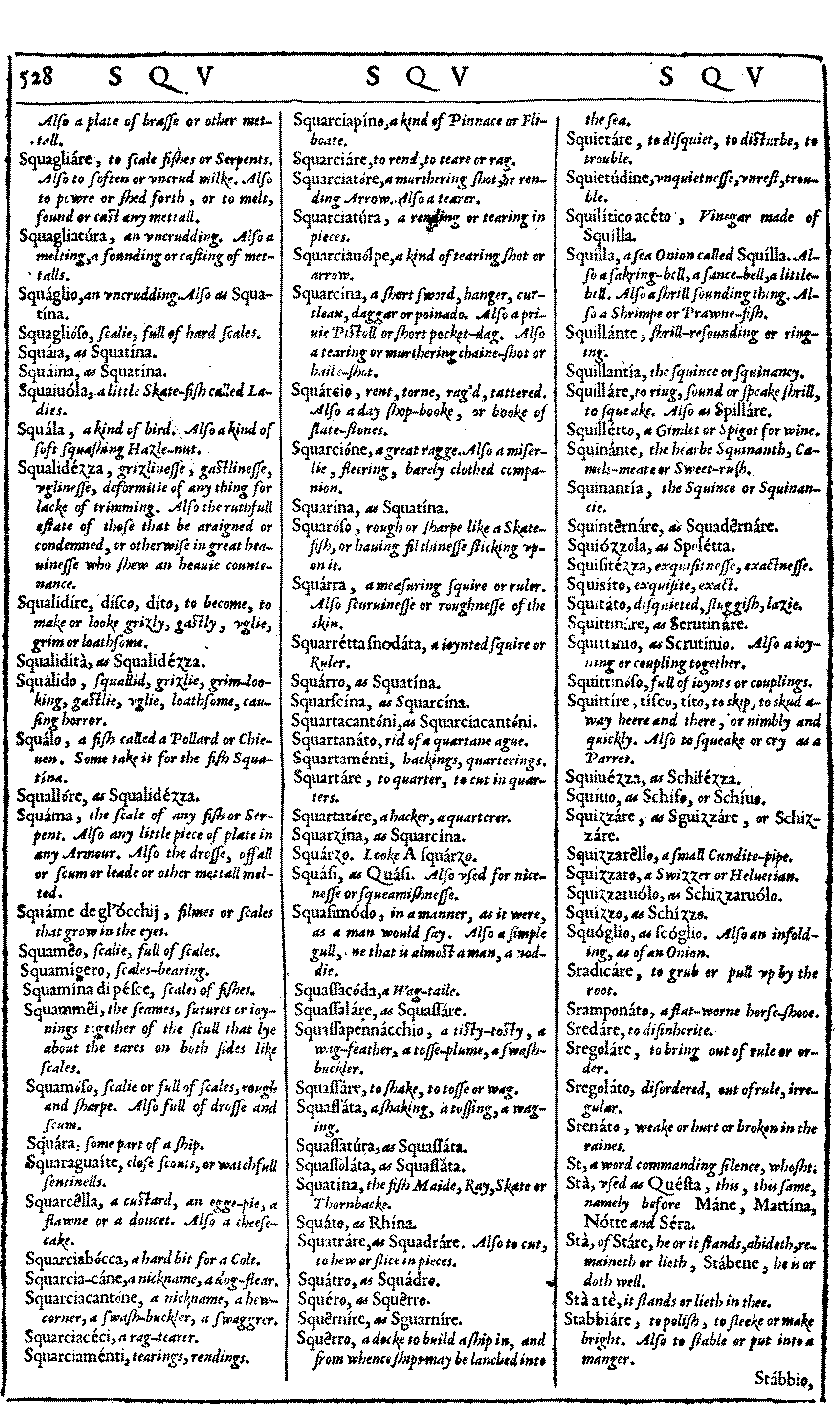 528 S Q V S Q V S Q V
Also a plate of brasse or other met-
tall.
Squagliáre, to scale fishes or Serpents.
Also to soften or vncrud milke. Also
to powre or shed forth, or to melt,
found or cast any mettall.
Squagliatúra, an vncrudding. Also a
melting, a founding or casting of met-
talls.
Squáglio, an vncrudding. Also as Squa-
tína.
Squaglióso, scalie, full of hard scales.
Squáia, as Squatína.
Squáina, as Squatína.
Squaiuóla, a little Skate-fish called La-
dies.
Squála, a kind of bird. Also a kind of
soft squashing Hazle-nut.
Squalidézza, grizlinesse, gastlinesse,
vglinesse, deformitie of any thing for
lacke of trimming. Also the ruthfull
estate of those that be araigned or
condemned, or otherwise in great hea-
uinesse who shew an heauie counte-
nance.
Squalidíre, dísco, díto, to become, to
make or looke grizly, gastly, vglie,
grim or loathsome.
Squalidità, as Squalidézza.
Squálido, squallid, grizlie, grim-loo-
king, gastlie, vglie, loathsome, cau-
sing horror.
Squálo, a fish called a Pollard or Chie-
uen. Some take it for the fish Squa-
tína.
Squallóre, as Squalidézza.
Squáma, the scale of any fish or Ser-
pent. Also any little piece of plate in
any Armour. Also the drosse, offall
or scum or leade or other mettall mel-
ted.
Squáme de gl'ócchij, filmes or scales
that grow in the eyes.
Squamêo, scalie, full of scales.
Squamígero, scales-bearing.
Squamína di pésce, scales of fishes.
Squammêi, the seames, sutures or ioy-
nings together of the scull that lye
about the eares on both sides like
scales.
Squamóso, scalie or full of scales, rough
and sharpe. Also full of drosse and
scum.
Squára, some part of a ship.
Squaraguaíte, close scouts, or watchfull
sentinells.
Squarcêlla, a custard, an egge-pie, a
flawne or a doucet. Also a cheese-
cake.
Squarciabócca, a hard bit for a Colt.
Squarcia-cáne, a nickname, a dog-flear.
Squarciacantóne, a nickname, a hew-
corner, a swash-buckler, a swaggrer.
Squarciacéci, a rag-tearer.
Squarciaménti, tearings, rendings.
Squarciapíno, a kind of Pinnace or Fli-
boate.
Squarciáre, to rend, to teare or rag.
Squarciatóre, a murthering shot, or ren-
ding Arrow. Also a tearer.
Squarciatúra, a rending or tearing in
pieces.
Squarciauólpe, a kind of tearing shot or
arrow.
Squarcína, a short sword, hanger, cur-
tleax, daggar or poinado. Also a pri-
uie Pistoll or short pocket-dag. Also
a tearing or murthering chaine-shot or
haile-shot.
Squárcio, rent, torne, rag'd, tattered.
Also a day shop-booke, or booke of
slate-stones.
Squarcióne, a great ragge. Also a miser-
lie, fleering, barely clothed compa-
nion.
Squarína, as Squatína.
Squaróso, rough or sharpe like a Skate-
fish, or hauing filthinesse sticking vp-
on it.
Squárra, a measuring squire or ruler.
Also sturuinesse or roughnesse of the
skin.
Squarrétta snodáta, a ioynted squire or
Ruler.
Squárro, as Squatína.
Squarscína, as Squarcína.
Squartacantóni, as Squarciacantóni.
Squartanáto, rid of a quartane ague.
Squartaménti, hackings, quarterings.
Squartáre, to quarter, to cut in quar-
ters.
Squartatóre, a hacker, a quarterer.
Squarzína, as Squarcina.
Squárzo. Looke A squárzo.
Squási, as Quási. Also vsed for nice-
nesse or squeamishnesse.
Squasimódo, in a manner, as it were,
as a man would say. Also a simple
gull, one that is almost a man, a nod-
die.
Squassacóda, a Wag-taile.
Squassaláre, as Squassáre.
Squassapennácchio, a tisty-tosty, a
wag-feather, a tosse-plume, a swash-
buckler.
Squassáre, to shake, to tosse or wag.
Squassáta, a shaking, a tossing, a wag-
ing.
Squassatúra, as Squassáta.
Squassoláta, as Squassáta.
Squatína, the fish Maide, Ray, Skate or
Thornbacke.
Squáto, as Rhína.
Squatráre, as Squadráre. Also to cut,
to hew or slice in pieces.
Squátro, as Squádro.
Squéro, as Squêrro.
Squêrníre, as Sguarníre.
Squêrro, a docke to build a ship in, and
from whence ships may be lanched into
the sea.
Squietáre, to disquiet, to disturbe, to
trouble.
Squietúdine, vnquietnesse, vnrest, trou-
ble.
Squilítico acéto, Vinegar made of
Squílla.
Squílla, a sea Onion called Squílla. Al-
so a sakring-bell, a sance-bell, a little-
bell. Also a shrill sounding thing. Al-
so a Shrimpe or Prawne-fish.
Squillánte, shrill-resounding or ring-
ing.
Squillantía, the squince or squinancy.
Squilláre, to ring, sound or speake shrill,
to squeake. Also as Spilláre.
Squillétto, a Gimlet or Spigot for wine.
Squinánte, the hearbe Squinanth, Ca-
mels-meate or Sweet-rush.
Squinantía, the Squince or Squinan-
cie.
Squintêrnáre, as Squadêrnáre.
Squiózzola, as Spolétta.
Squisitézza, exquisitnesse, exactnesse.
Squisíto, exquisite, exact.
Squitáto, disquieted, sluggish, lazie.
Squittináre, as Scrutináre.
Squittínio, as Scrutínio. Also a ioy-
ning or coupling together.
Squittinóso, full of ioynts or couplings.
Squittíre, tísco, títo, to skip, to skud a-
way heere and there, or nimbly and
quickly. Also to squeake or cry as a
Parret.
Squiuézza, as Schifézza.
Squíuo, as Schífo, or Schíuo.
Squizzáre, as Sguizzáre, or Schiz-
záre.
Squizzarêllo, a small Cundite-pipe.
Squizzaro, a Swizzer or Heluetian.
Squizzaruólo, as Schizzaruólo.
Squízzo, as Schízzo.
Squóglio, as scóglio. Also an infold-
ing, as of an Onion.
Sradicáre, to grub or pull vp by the
root.
Sramponáto, a flat-worne horse-shooe.
Sredáre, to disinherite.
Sregoláre, to bring out of rule or or-
der.
Sregoláto, disordered, out of rule, irre-
gular.
Srenáto, weake or hurt or broken in the
raines.
St, a word commanding silence, whosht.
Stà, vsed as Quésta, this, this same,
namely before Máne, Mattína,
Nótte and Séra.
Stà, of Stáre, he or it stands, abideth, re-
maineth or lieth, Stábene, he is or
doth well.
Stà a tè, it stands or lieth in thee.
Stabbiáre, to polish, to sleeke or make
bright. Also to stable or put into a
manger.
Stábbio,